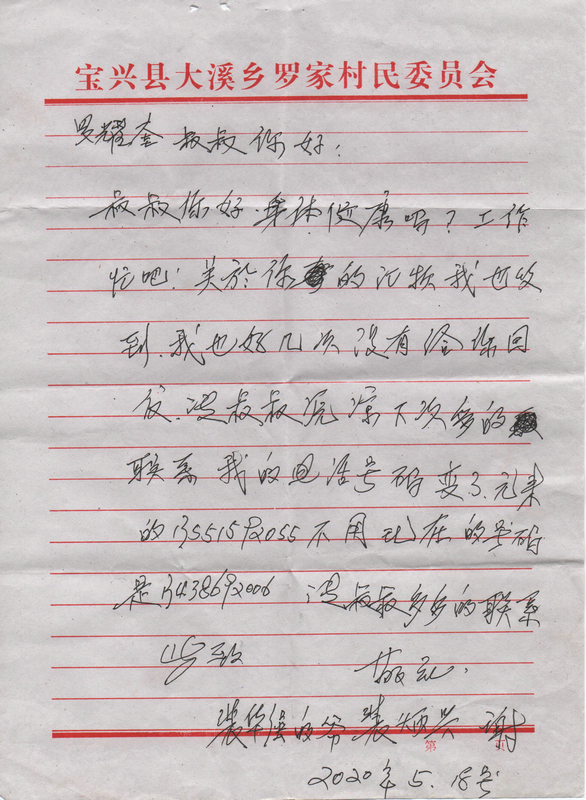 宝兴县大溪乡罗家村民委员会
罗耀奎叔叔你好:
叔叔你好.身体健康吗?工作
忙吧!关於你的汇款我也收
到.我也好几次没有给你回
信.望叔叔原凉下次多的
联系我的电话号码变了.元来
的13551592055不用现在的号码
是13438692006 望叔叔多多的联系
此致 敬礼.
袁华强的爷 袁炳兴 谢
第 页
2020年5.18号